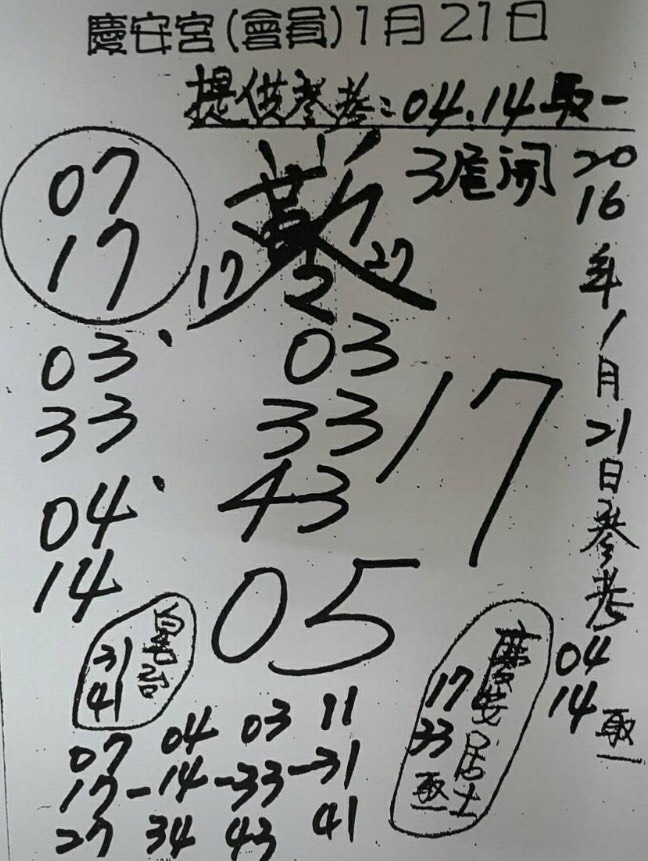 慶安宮(會員)1月21日
提供參考:04.14取一
3尾開
07
17
17 2 27
03
33
04
14
03
33
43
17
05
2016年1月21日參考
04
14取一
31
41
慶安居士
17
33
取一
07 04 03 11
17-14-33-31
27 34 43 41